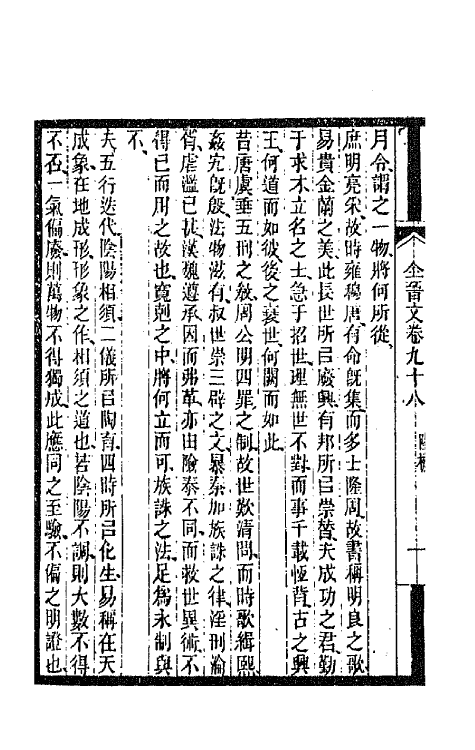 全晉文卷九十八
月令謂之一物將何所從
庶明亮采故時雍穆唐有命旣集而多士隆周故書稱明良之歌
易貴金蘭之美此長世所㠯廢興有邦所㠯崇替夫成功之君勤
于求才立名之士急于招世理無世不對而事千載恆背古之興
王何道而如彼後之衰世何闕而如此
昔唐虞垂五刑之敎周公明四罪之制故世歎清問而時歌緝熙
姦宄旣殷法物滋有叔世崇三辟之文暴秦加族誅之律淫刑淪
胥虐濫已甚漢魏遵承因而弗革亦由險泰不同而救世異術不
得已而用之故也寬剋之中將何立而可族誅之法足爲永制與
不
夫五行迭代陰陽相須二儀所㠯陶育四時所㠯化生易稱在天
成象在地成形形象之作相須之道也若陰陽不調則大數不得
不否一氣偏廢則萬物不得獨成此應同之至驗不偏之明證也